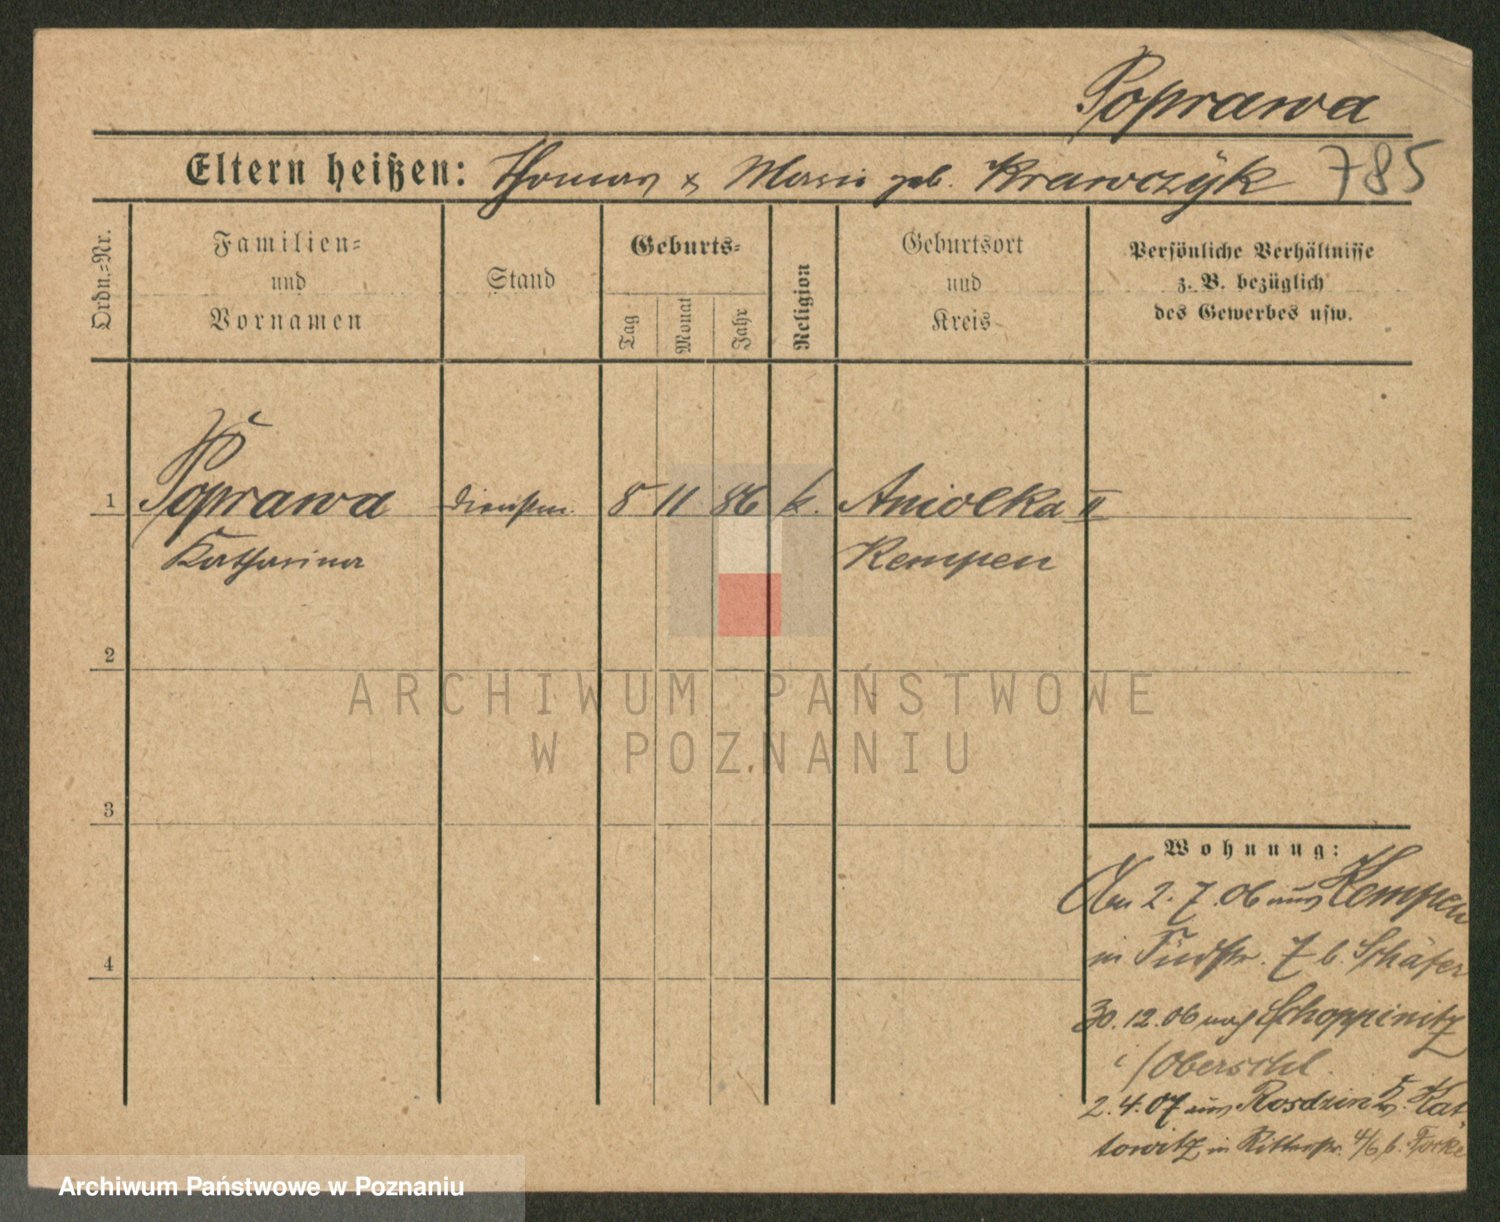 Poprawa
Eltern heißen: Thomas & Maria geb. Krawczyk 785
Ordn.=Nr.
Familien=
und
Vornamen
Stand
Geburts=
Tag
Monat
Jahr
Religion
Geburtsort
und
Kreis
Persönliche Verhältnisse
z. B. bezüglich
des Gewerbes usw.
1 Poprawa dienstm. 8 11 86 k. Aniolka II
Katharina Kempen
2
ARCHIWUM PAŃSTWOWE
W POZNANIU
3
Wohnung:
2.7.06 aus Kempen
4
in Südstr. 7 b. Schäfer
30.12.06 nach Schoppinitz
i/Oberschl.
2.4.07 aus Rosdzin Kat
towitz in Ritterstr. 4/6 b.
Archiwum Państwowe w Poznaniu